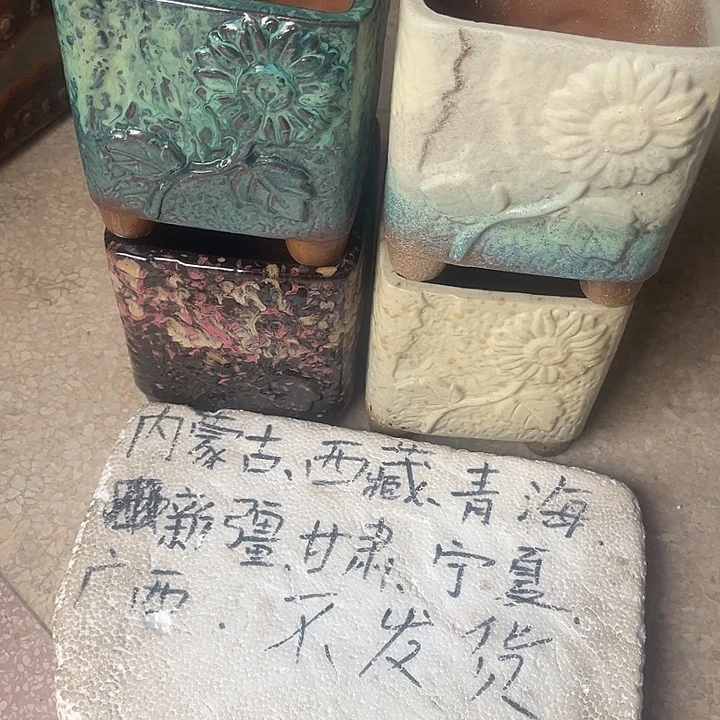 内蒙古、西藏、青海
新疆、甘肃、宁夏、
广西. 不发货